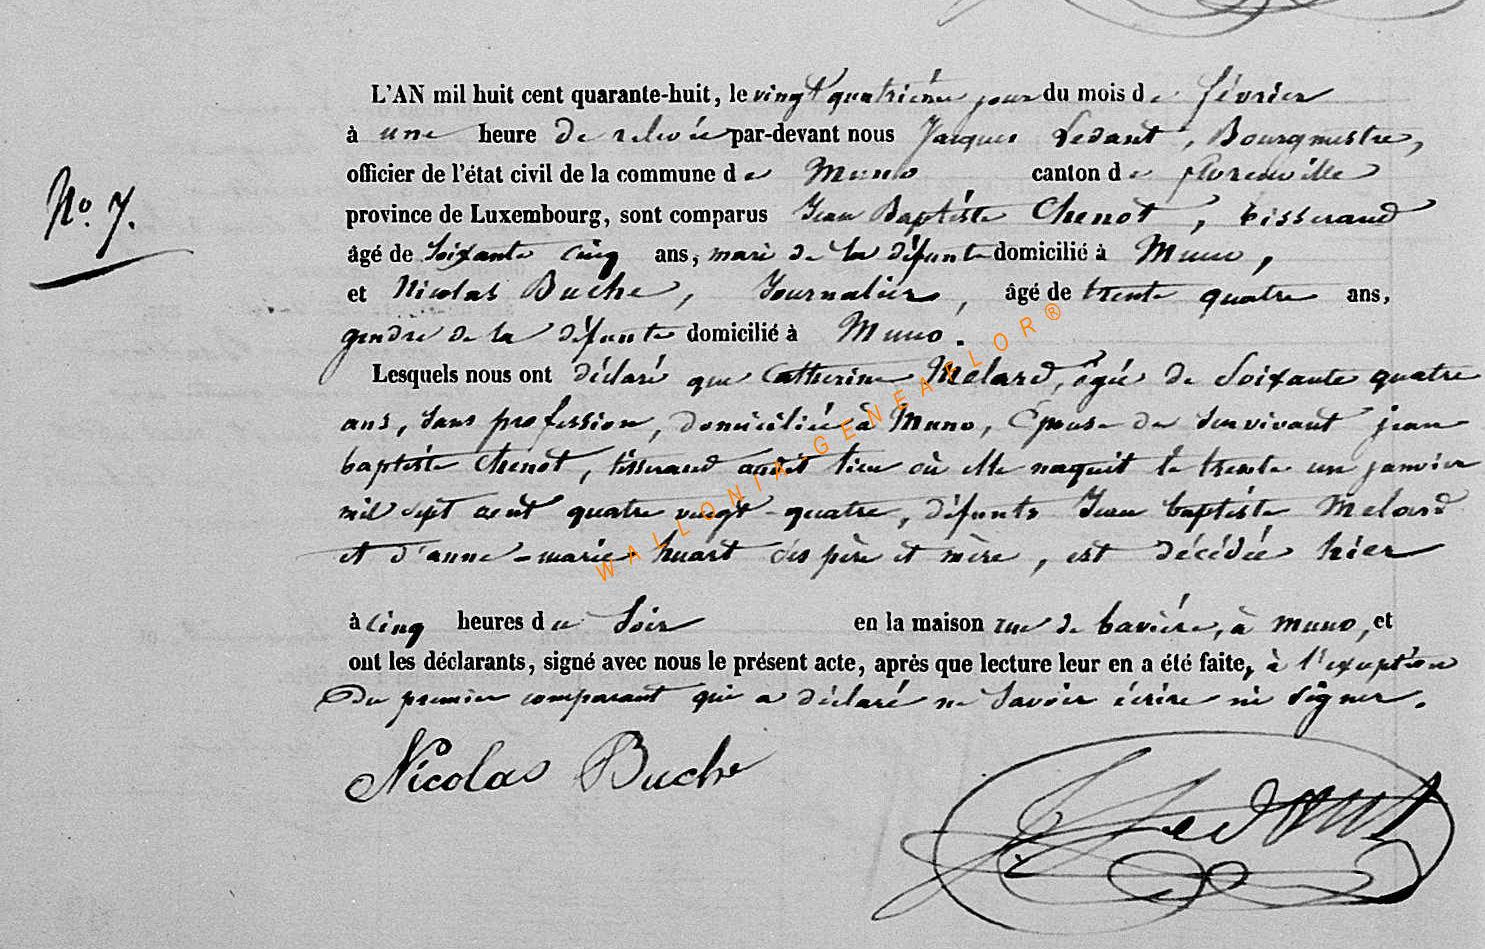 L'AN mil huit cent quarante-huit, le vingt quatrième jour du mois de février
à une heure de relevée par-devant nous Jacques Ledant, Bourgmestre,
officier de l'état civil de la commune de Muno canton de florenville
N° 7.
province de Luxembourg, sont comparus Jean Baptiste Chenot, tisserand
âgé de soixante cinq ans, mari de la défunte domicilié à Muno,
et Nicolas Buche, Journalier, âgé de trente quatre ans,
gendre de la défunte domicilié à Muno.
Lesquels nous ont déclaré que Catherine Melard, âgée de soixante quatre
ans, sans profession, domiciliée à Muno, Epouse du survivant jean
baptiste Chenot, tisserand audit lieu où elle naquit le trente un janvier
mil sept cent quatre vingt-quatre, défunts Jean baptiste Melard
et d'anne-marie huart ses père et mère, est décédée hier
à cinq heures du soir en la maison rue de bavière, à muno, et
ont les déclarants, signé avec nous le présent acte, après que lecture leur en a été faite, à l'exception
Du premier comparant qui a déclaré ne savoir écrire ni signer.
Nicolas Buche
Ledant
WALLONIA-GENEAFLOR®